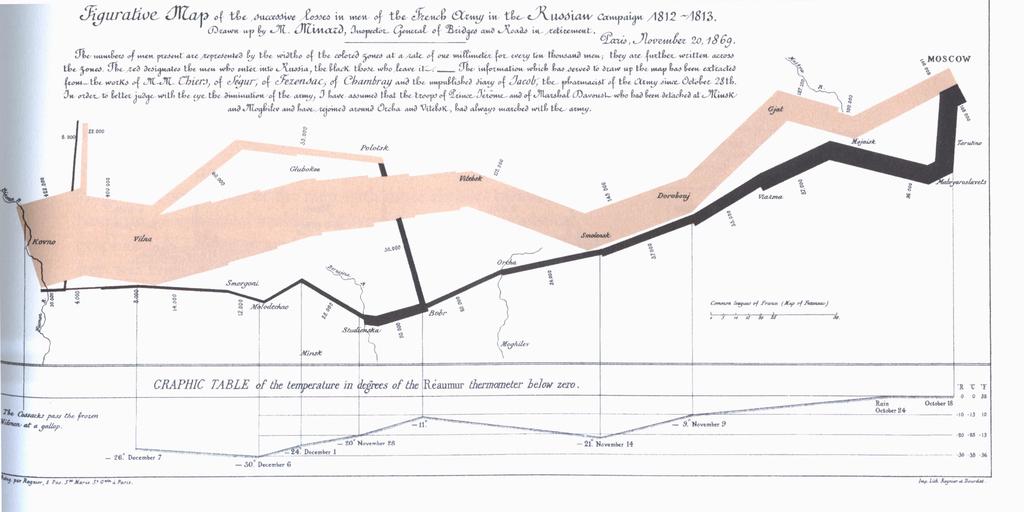 Figurative Map of the successive losses in men of the French Army in the Russian campaign 1812~1813.
Drawn up by M. Minard, Inspector General of Bridges and Roads in retirement.
Paris, November 20, 1869.
The numbers of men present are represented by the widths of the colored zones at a rate of one millimeter for every ten thousand men; they are further written across
the zones. The red designates the men who enter into Russia, the black those who leave it. ___ The information which has served to draw up the map has been extracted
from the works of M. M. Thiers, of Ségur, of Fezensac, of Chambray and the unpublished diary of Jacob, the pharmacist of the Army since October 28th.
In order to better judge with the eye the diminution of the army, I have assumed that the troops of Prince Jérôme and of Marshal Davoust who had been detached at Minsk
and Moghilev and have rejoined around Orcha and Vitebsk, had always marched with the army.
MOSCOW
Moskva R.
Gjat
Mojaisk
Tarutino
Polotsk
Glubokoe
Vitebsk
Maloyaroslavets
Dorobouj
Viazma
Kovno
Vilna
Smolensk
Orcha
Smorgoni
Molodechno
Studienska
Bobr
Minsk
Moghilev
22 000
400 000
60,000
33,000
30,000
8,000
14,000
12,000
37,000
Common leagues of France (Map of Fezensac)
GRAPHIC TABLE of the temperature in degrees of the Réaumur thermometer below zero.
°R °C °F
The Cossacks pass the frozen
Niemen at a gallop.
Rain
October 24
October 18
— 9.° November 9
— 11.°
— 21.° November 14
— 20.° November 28
— 24.° December 1
— 26.° December 7
— 30.° December 6
Imp. Lith. Regnier et Dourdet